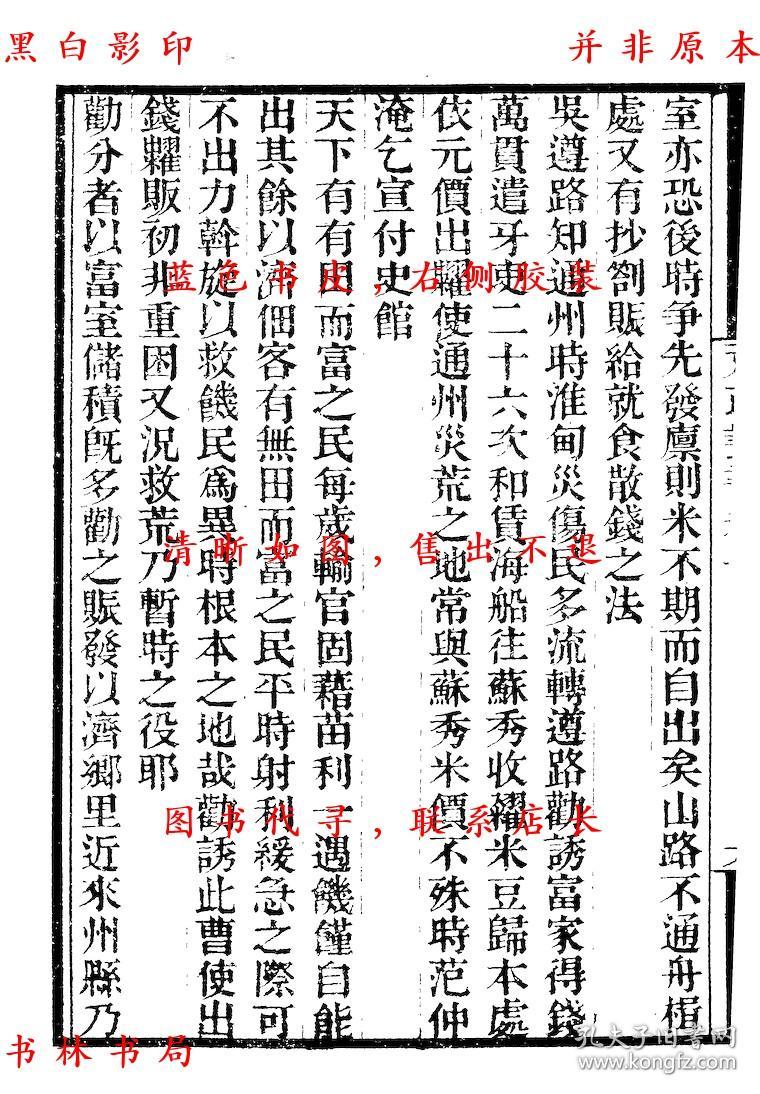 黑白影印
并非原本
室亦恐後時争先發廪則米不期而自出矣山路不通舟楫
處又有抄劄賑給就食散錢之法
吳遵路知通州時淮甸災傷民多流轉遵路勸誘富家得錢
萬貫遣牙吏二十六次和賃海船往蘇秀收糴米豆歸本處
依元價出糶使通州災荒之地常與蘇秀米價不殊時范仲
淹乞宣付史館
天下有有田而富之民每歲輸官固藉苗利一遇饑僅自能
出其餘以濟佃客有無田而富之民平時射利緩急之際可
不出力斡旋以救饑民爲異時根本之地哉勸誘此曹使出
錢糶販初非重困又况救荒乃暫時之役耶
勸分者以富室儲積旣多勸之賑發以濟鄉里近來州縣乃
蓝色书皮，右侧胶装
清晰如图，售出不退
图书代寻，联系店长
书林书局
孔夫子旧书网
www.kongfz.com